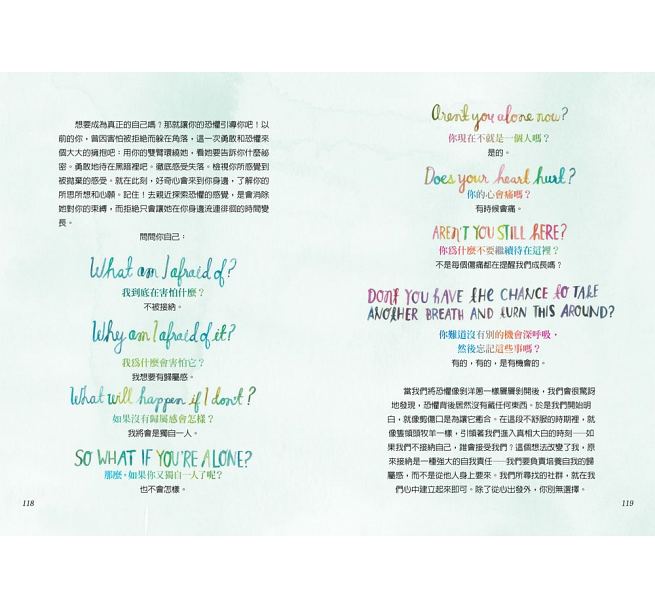 想要成為真正的自己嗎？那就讓你的恐懼引導你吧！以
前的你，曾因害怕被拒絕而躲在角落，這一次勇敢和恐懼來
個大大的擁抱吧：用你的雙臂環繞她，看她要告訴你什麼祕
密。勇敢地待在黑暗裡吧。徹底感受失落。檢視你所感覺到
被拋棄的感受。就在此刻，好奇心會來到你身邊，了解你的
所思所想和心願。記住！去親近探索恐懼的感覺，是會消除
她對你的束縛，而拒絕只會讓她在你身邊流連徘徊的時間變
長。
問問你自己：
What am I afraid of?
我到底在害怕什麼？
不被接納。
Why am I afraid of it?
我為什麼會害怕它？
我想要有歸屬感。
What will happen if I don't?
如果沒有歸屬感會怎樣？
我將會是獨自一人。
SO WHAT IF YOU'RE ALONE?
那麼，如果你又獨自一人了呢？
也不會怎樣。
118
Aren't you alone now?
你現在不就是一個人嗎？
是的。
Does your heart hurt?
你的心會痛嗎？
有時候會痛。
AREN'T YOU STILL HERE?
你為什麼不要繼續待在這裡？
不是每個傷痛都在提醒我們成長嗎？
DON'T YOU HAVE THE CHANCE TO TAKE
ANOTHER BREATH AND TURN THIS AROUND?
你難道沒有別的機會深呼吸，
然後忘記這些事嗎？
有的，有的，是有機會的。
當我們將恐懼像剝洋蔥一樣層層剝開後，我們會很驚訝
地發現，恐懼背後居然沒有藏任何東西。於是我們開始明
白，就像剪傷口是為讓它癒合。在這段不舒服的時期裡，就
像隻領頭牧羊一樣，引領著我們進入真相大白的時刻——如
果我們不接納自己，誰會接受我們？這個想法改變了我，原
來接納是一種強大的自我責任——我們要負責培養自我的歸
屬感，而不是從他人身上要來。我們所尋找的社群，就在我
們心中建立起來即可。除了從心出發外，你別無選擇。
119